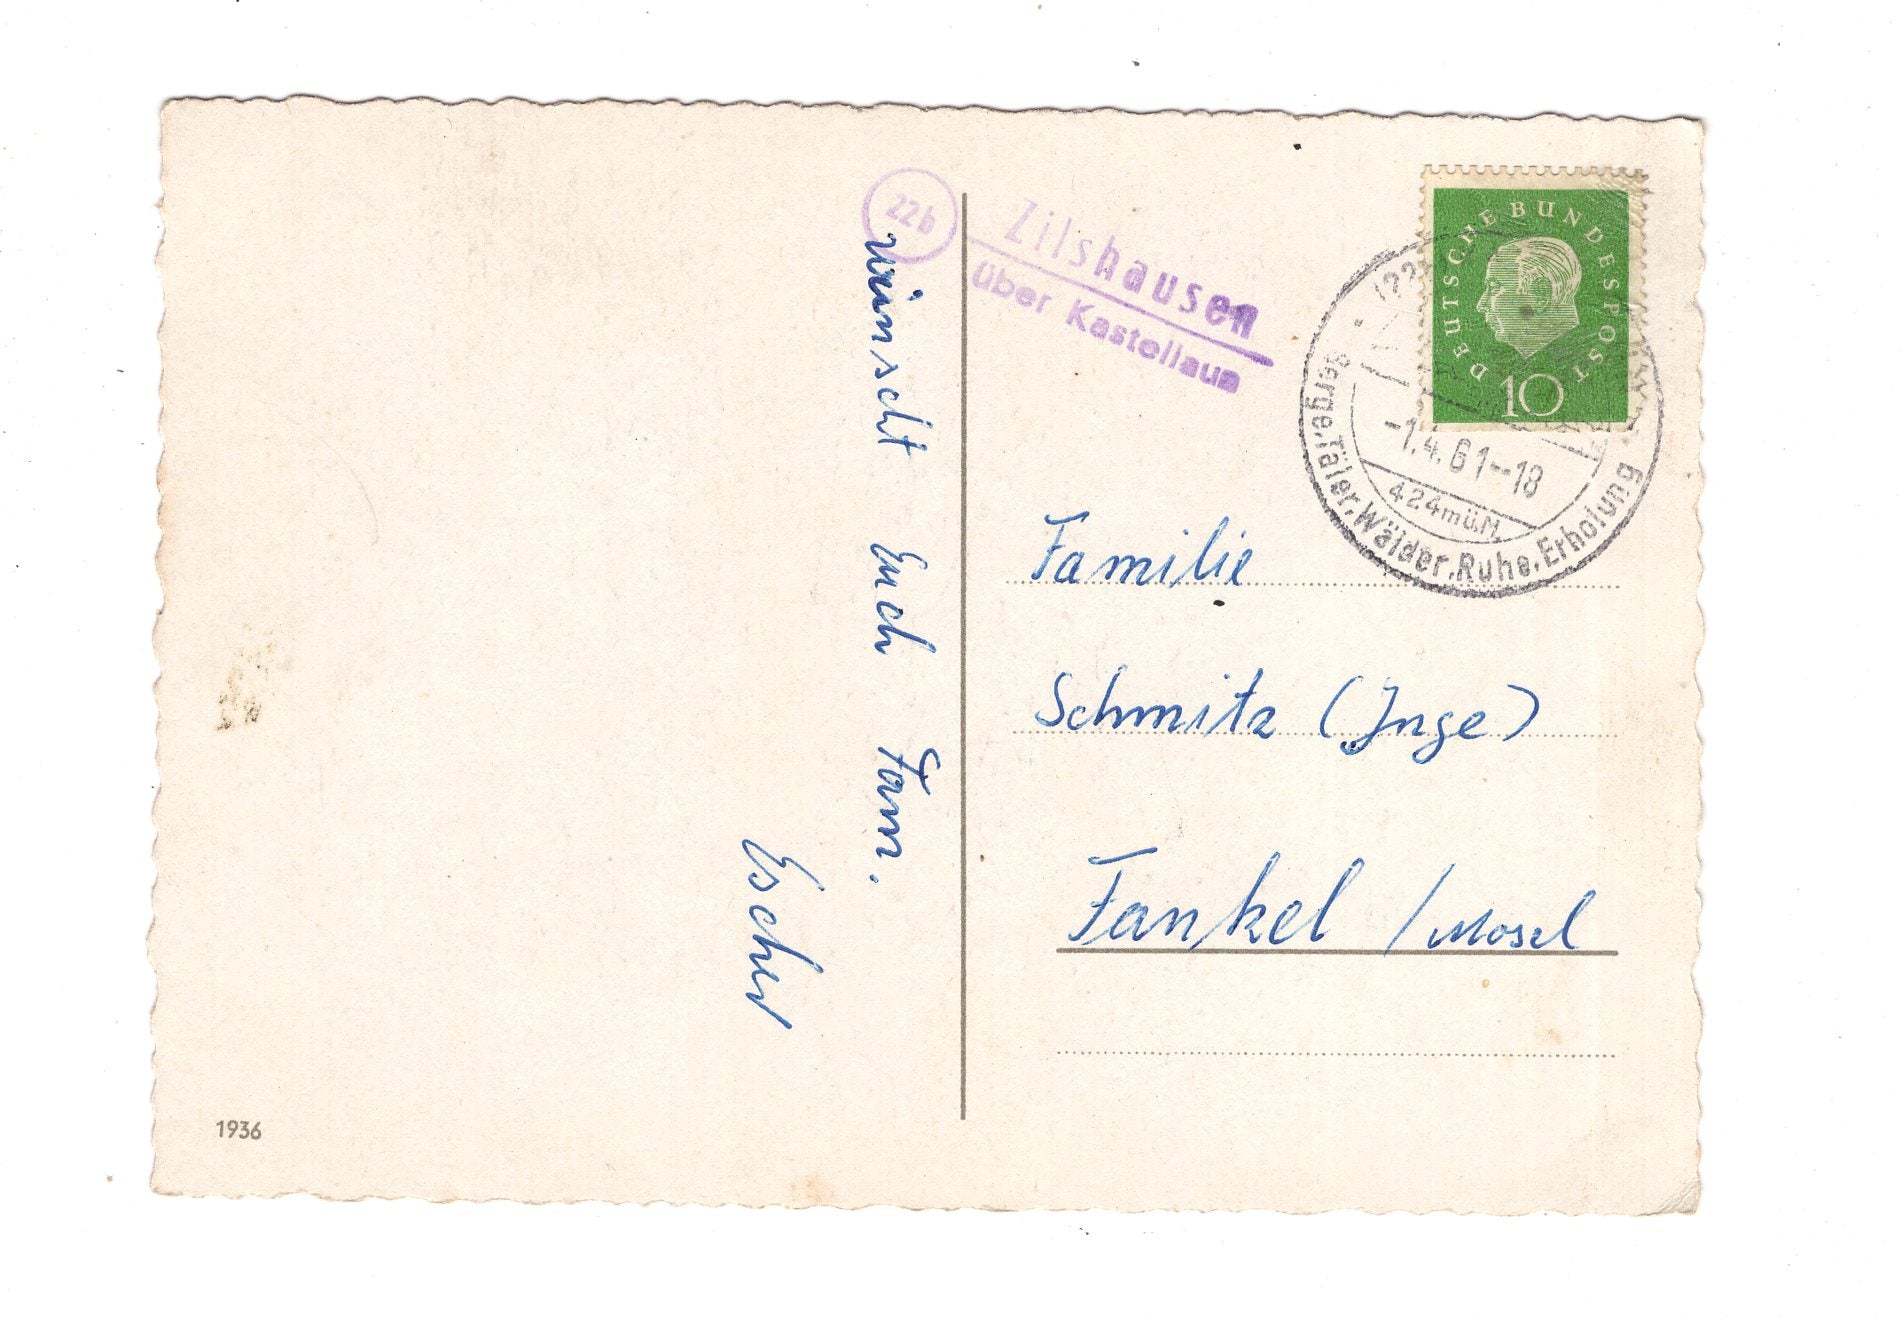 22b
Zilshausen
über Kastellaun
DEUTSCHE BUNDESPOST
10
-1.4.61--18
424mü.M.
Berge, Täler, Wälder, Ruhe, Erholung
wünscht Euch Fam.
Escher
Familie
Schmitz (Inge)
Fankel / Mosel
1936